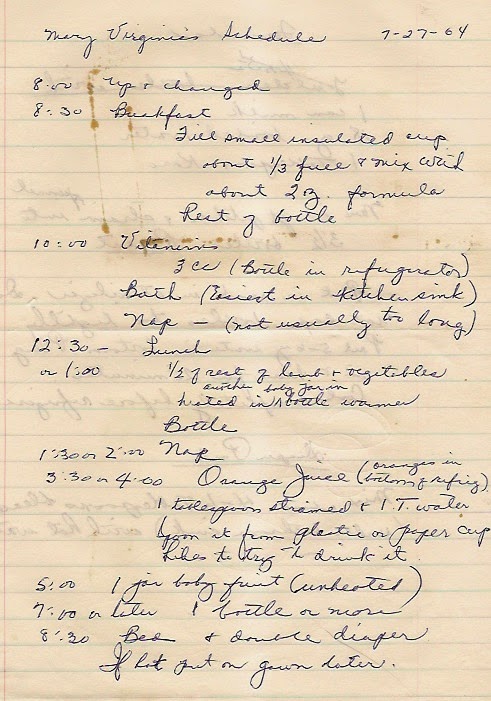 Mary Virginia's Schedule 7-27-64
8:00 Up & changed
8:30 Breakfast
Fill small insulated cup
about 1/3 full & mix with
about 2 oz. formula
Rest of bottle
10:00 Vitamins
3 cc (Bottle in refrigerator)
Bath (Easiest in kitchen sink)
Nap — (not usually too long)
12:30 - Lunch
or 1:00 1/2 of rest of lamb & vegetables
another baby jar in
heated in bottle warmer
Bottle
1:30 or 2:00 Nap
3:30 or 4:00 Orange Juice (oranges in
bottom of refrig)
1 tablespoon strained & 1 T. water
Spoon it from plastic or paper cup
Likes to try to drink it.
5:00 1 jar baby fruit (unheated)
7:00 or later 1 bottle or more
8:30 Bed & double diaper
If hot put on gown later.